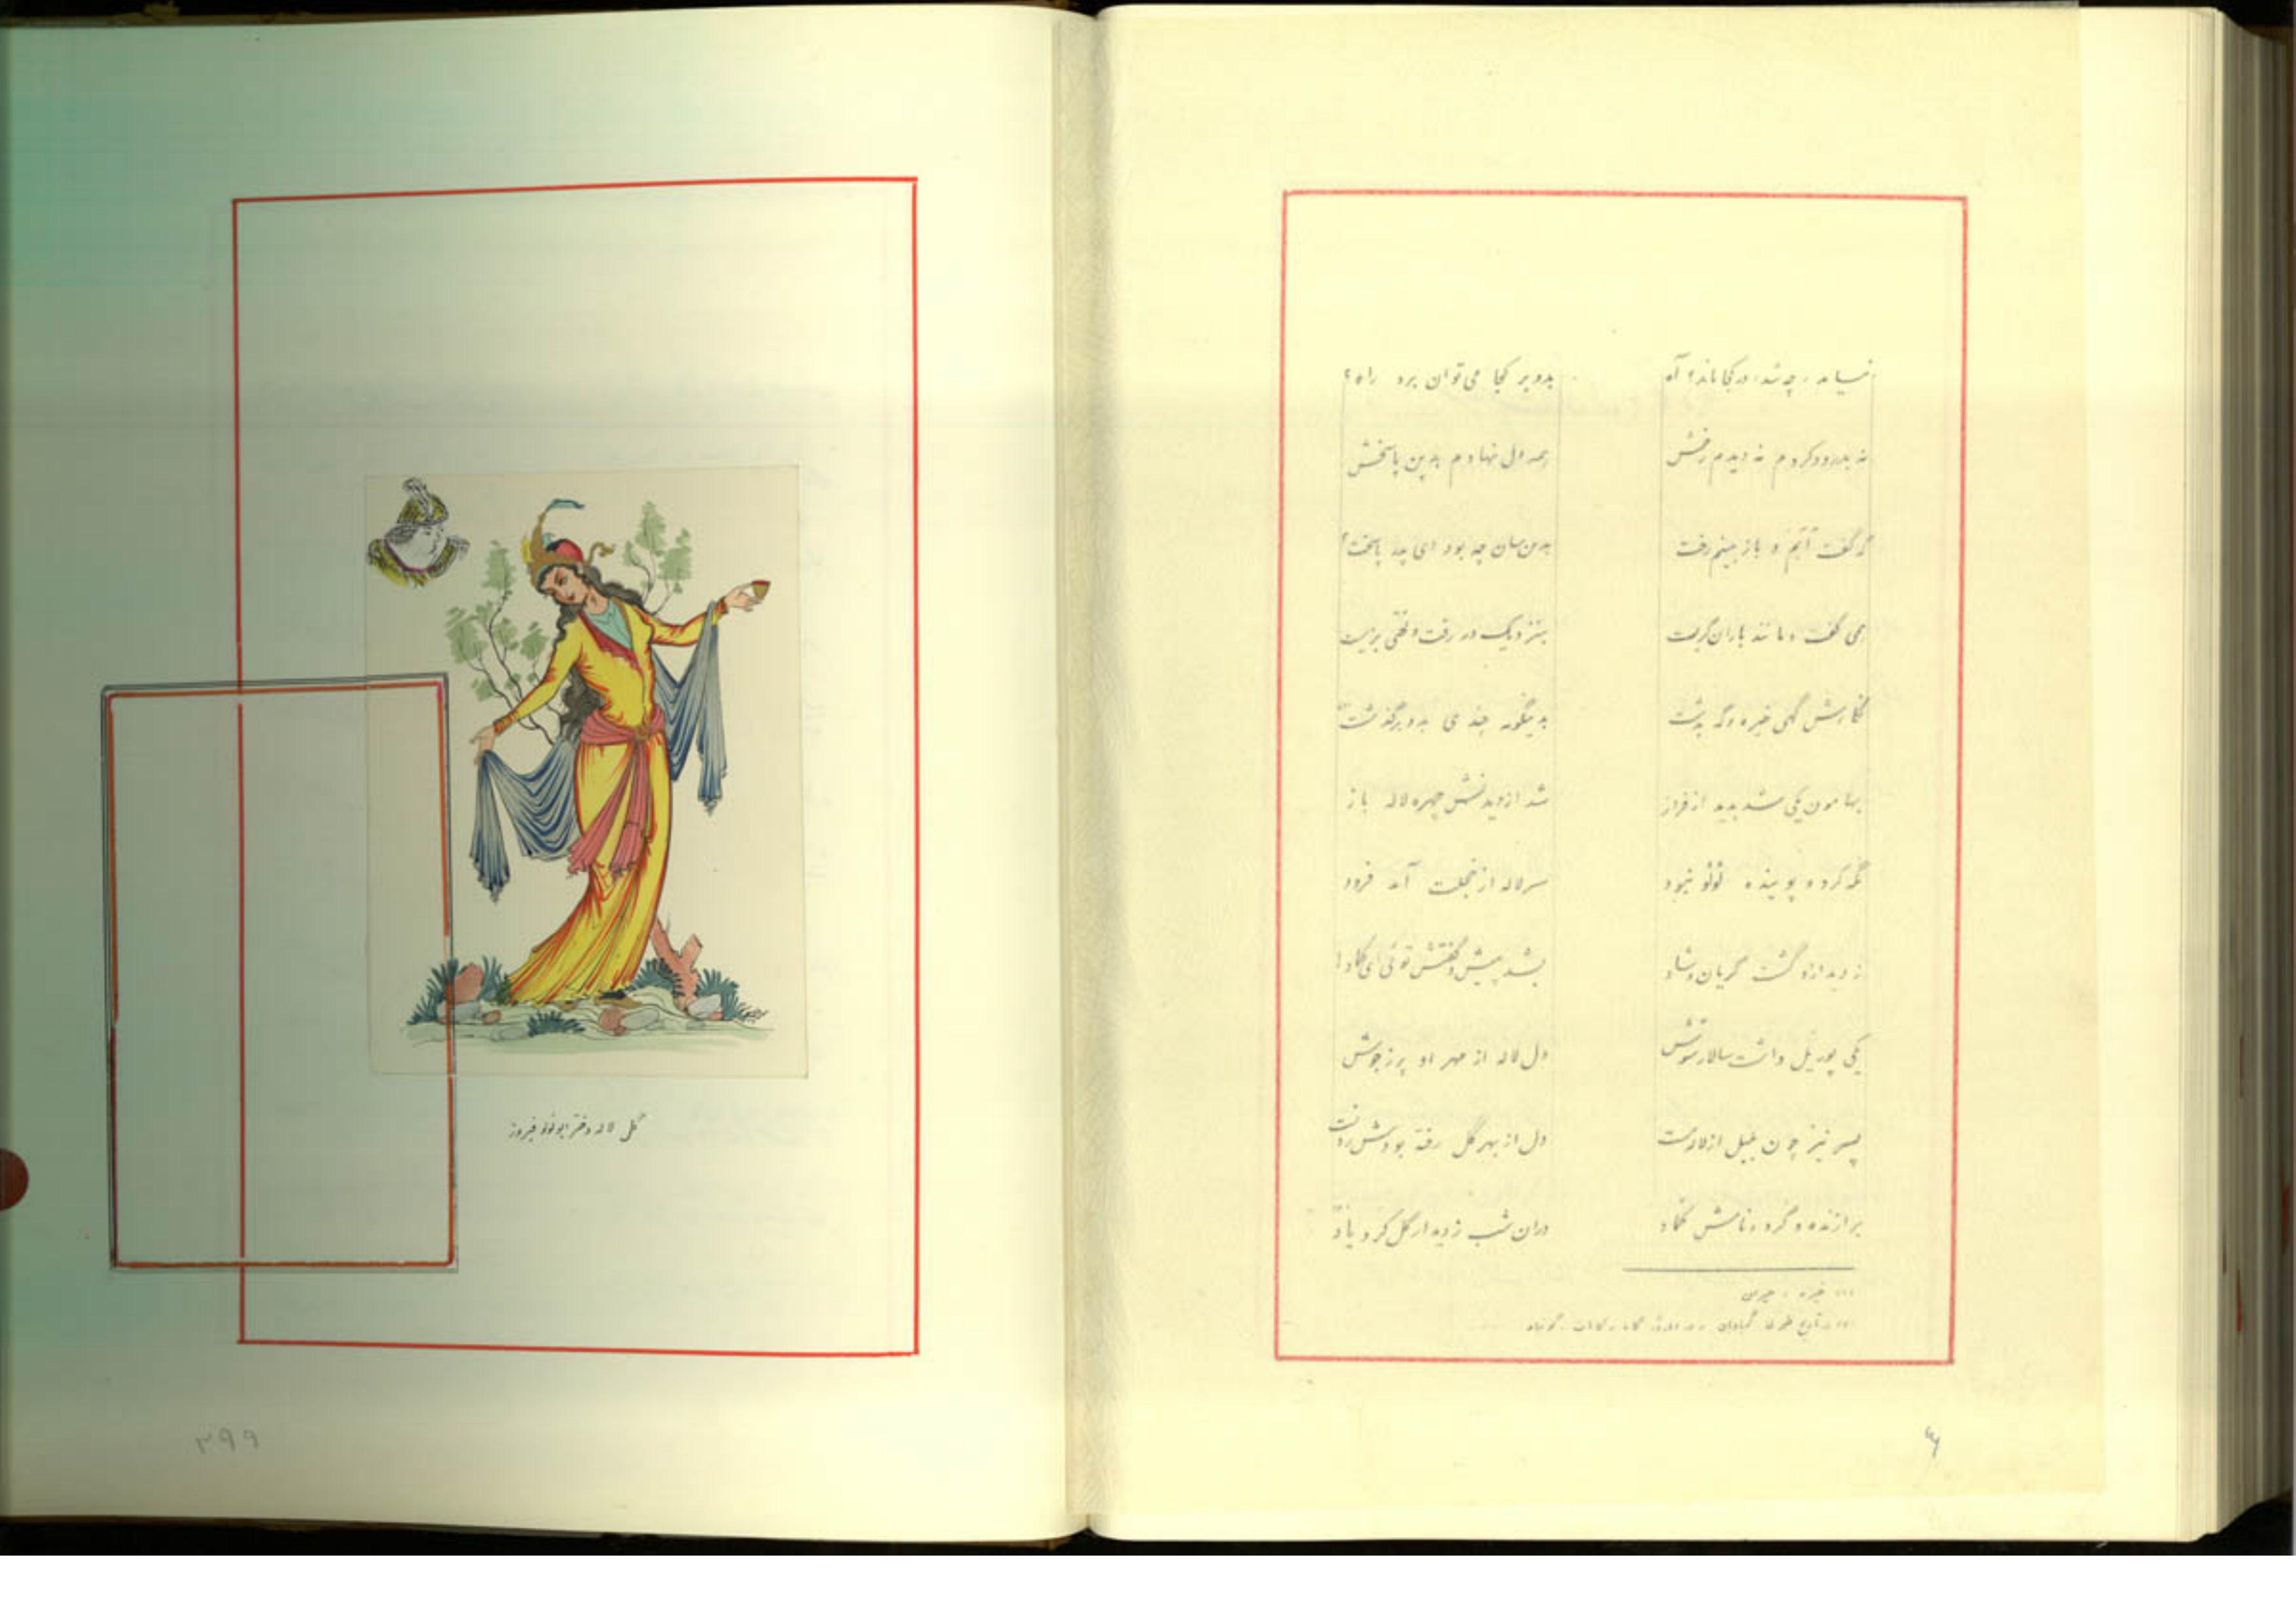 نیامد، چه شد، در کجا ماند؟ آه    بدو بر کجا می‌توان برد راه؟
نه بدرود کردم نه دیدم رخش    همه دل نهادم بدین پاسخش
که گفت آیم و باز بینم رخت    بدین سان چه بود ای پدر پاسخت؟
همی گفت و مانند باران گریست    بنزدیک در رفت و لختی بزیست
نگارش گهی خیره و گه بدشت    بدینگونه چندی بدو بر گذشت
بهامون یکی شد پدید از فراز    شد از دیدنش چهره لاله باز
نگه کرد و پوینده لؤلؤ نبود    سر لاله از خجلت آمد فرود
ز دیدار او گشت گریان و شاد    بشد پیش و گفتش توئی ای کماد!
یکی پور یل داشت سالار شوش    دل لاله از مهر او پر ز جوش
پسر نیز چون بلبل از لاله مست    دل از بهر گل رفته بودش ز دست
برازنده و گرد و نامش کماد    در آن شب ز دیدار گل کرد یاد
خیره
گل لاله دختر ابولؤلؤ فیروز
۳۹۹